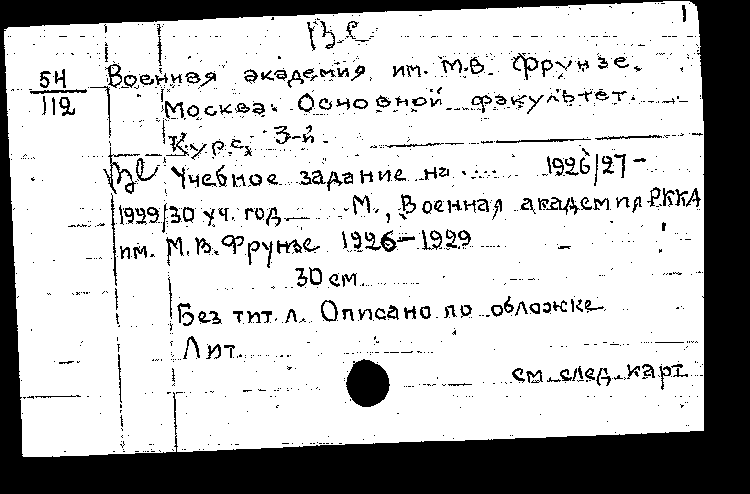 1
Вс
54/112 Военная академия им. М.В. Фрунзе.
Москва. Основной факультет.
Курс, 3-й.
Вс Учебное задание на .... 1926/27-
1929/30 уч. год. М., Военная академия РККА
им. М.В. Фрунзе 1926-1929
30 см
Без тит. л. Описано по обложке
Лит.
см. след. карт.